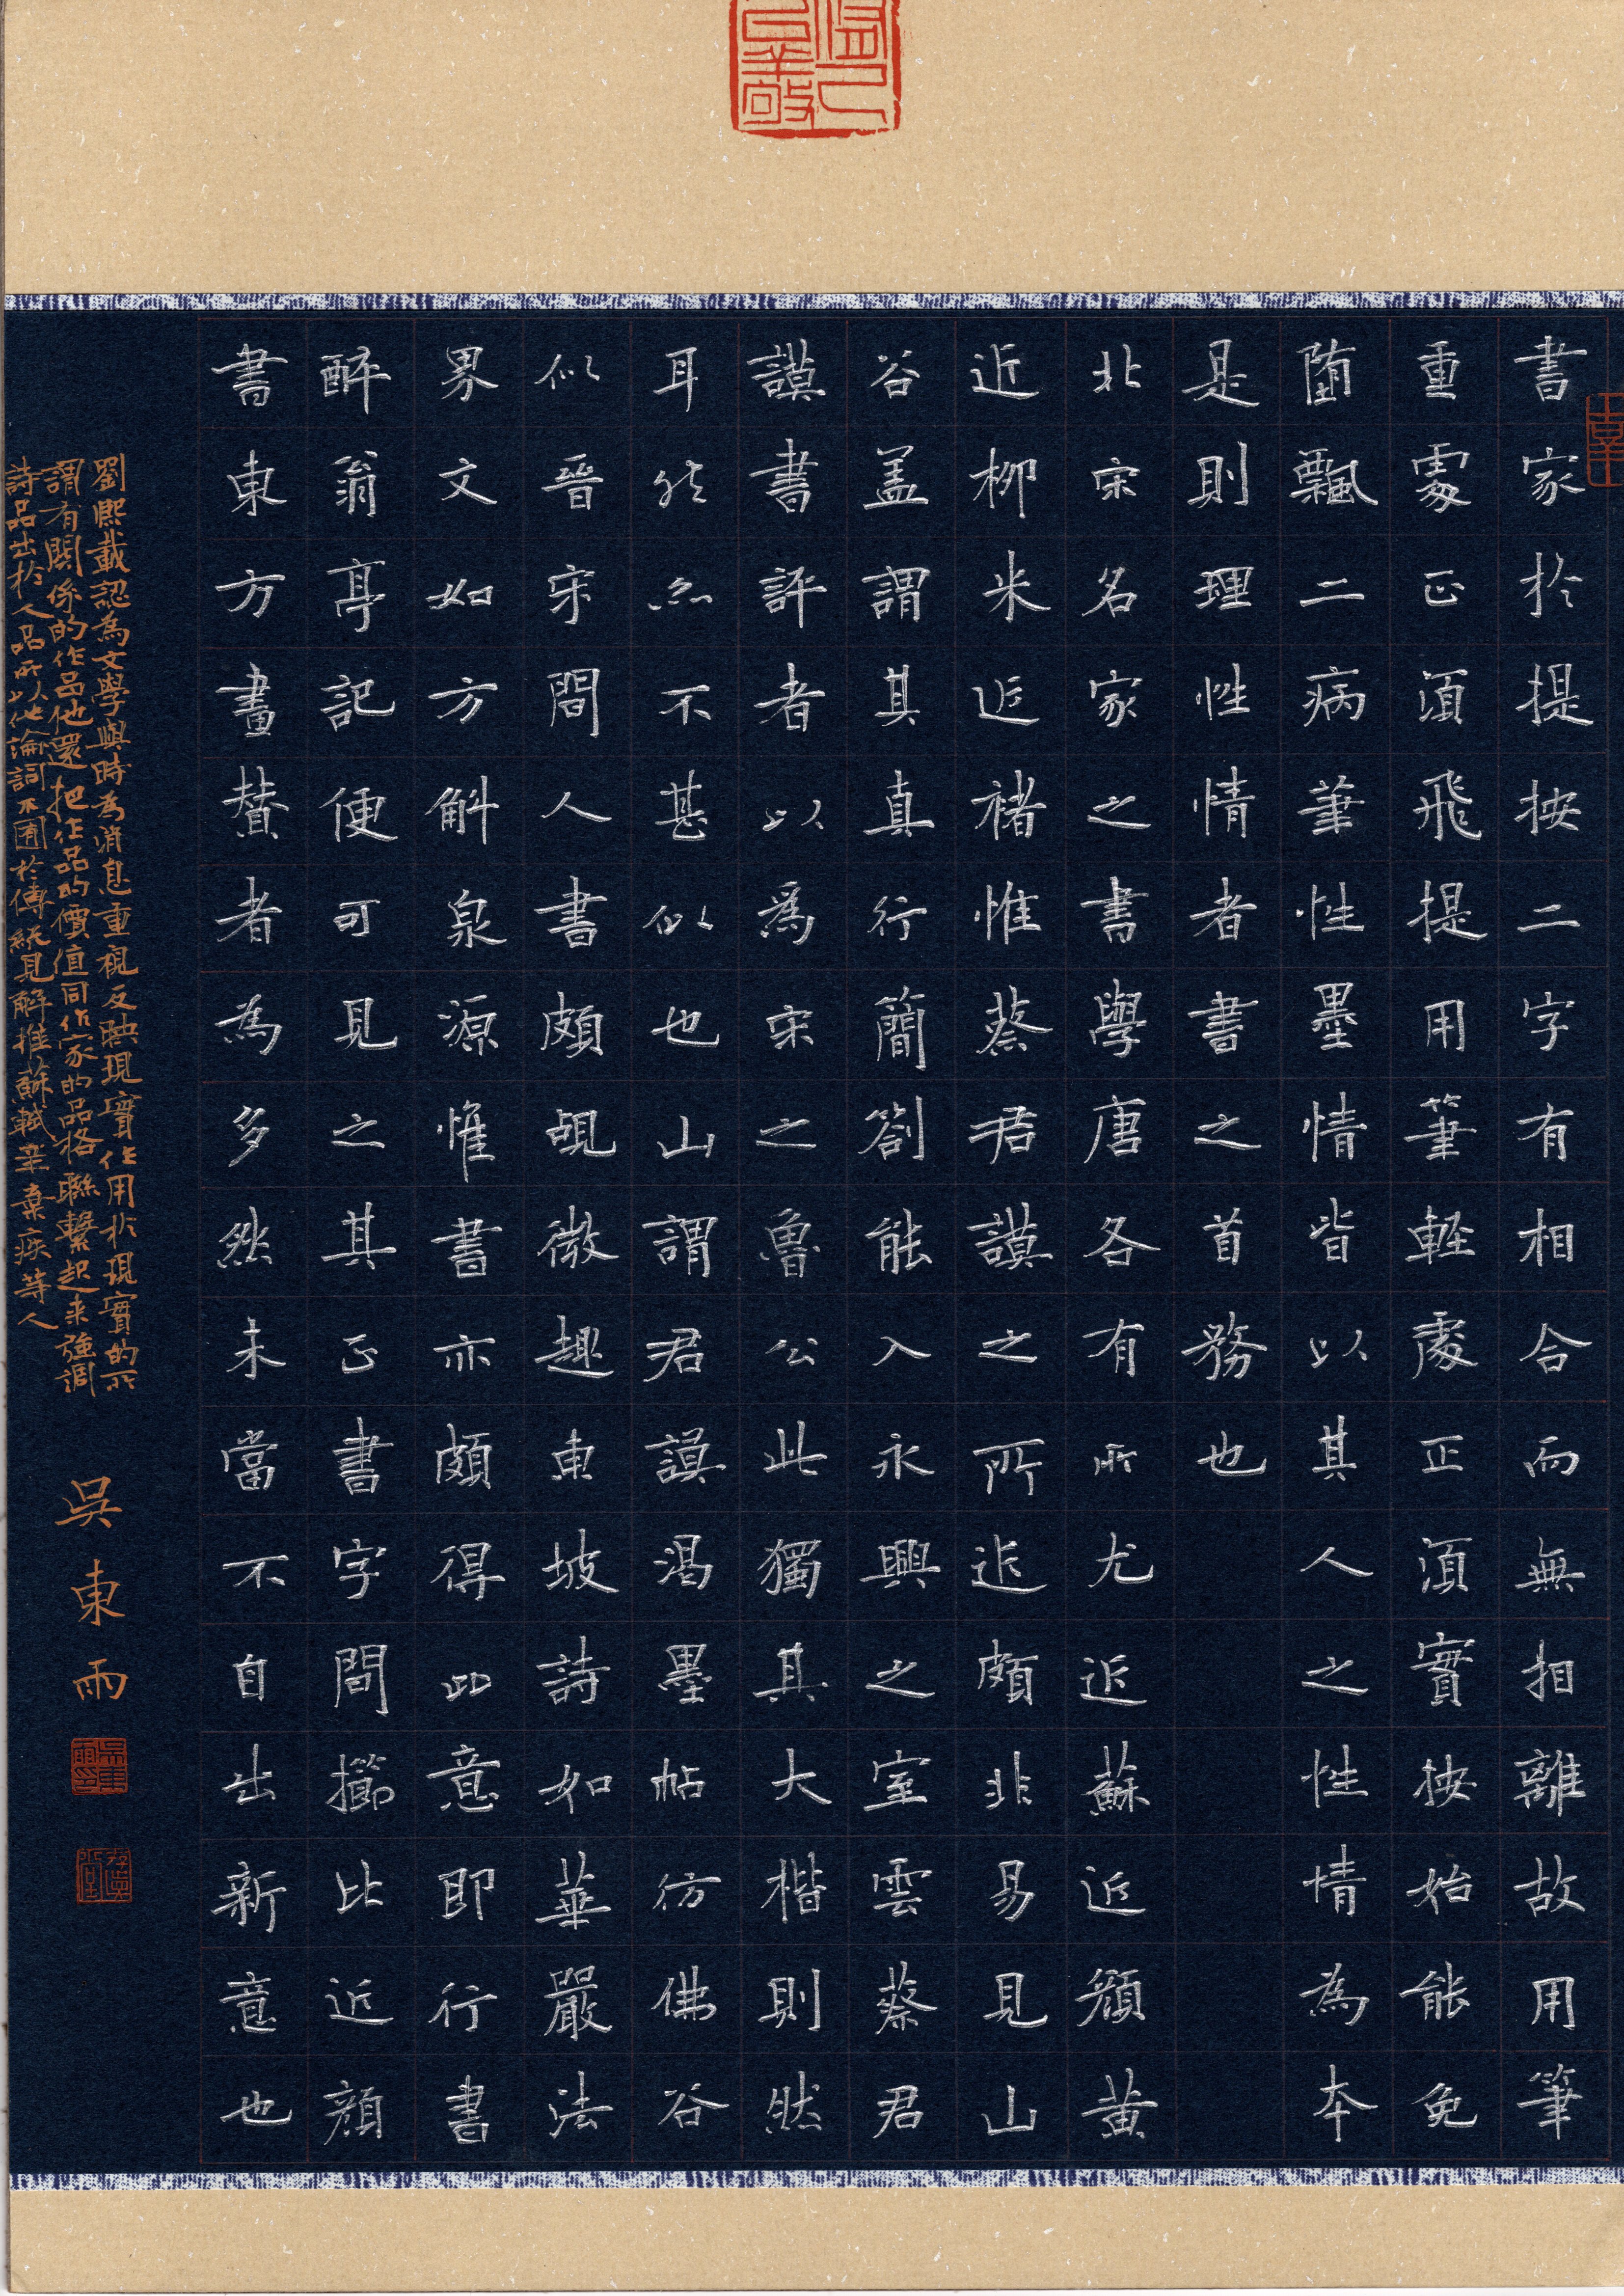 書家於提按二字有相合而無相離故用筆
重處正須飛提用筆輕處正須實按始能免
墮飄二病筆性墨情皆以其人之性情為本
是則理性情者書之首務也
北宋名家之書學唐各有所尤近蘇近顏黃
近柳米近褚惟蔡君謨之所近頗非易見山
谷盖謂其真行簡劄能入永興之室雲蔡君
謨書評者以為宋之魯公此獨其大楷則然
耳然亦不甚似也山谷謂君謨渴墨帖彷佛
似晉宋間人書頗覘微趣東坡詩如華嚴法
界文如方斛泉源惟書亦頗得此意即行書
醉翁亭記便可見之其正書字間櫛比近顏
書東方畫贊者為多然未嘗不自出新意也
劉熙載認為文學與時為消息重視反映現實作用於現實的所
謂有關係的作品他還把作品的價值同作家的品格聯繫起來強調
詩品出於人品所以他論詞不囿於傳統見解推蘇軾辛棄疾等人
吳東雨